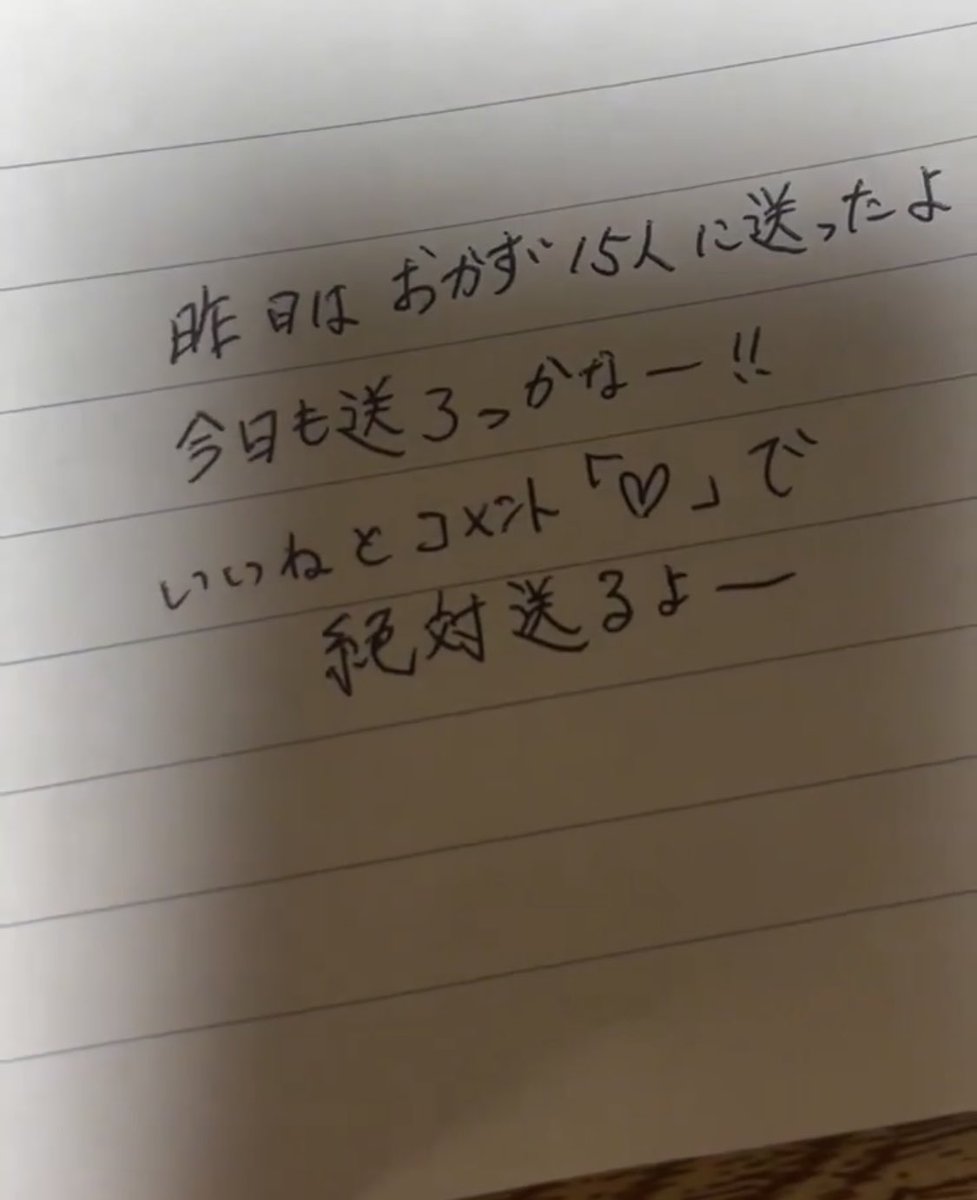 昨日はおかず15人に送ったよ
今日も送ろっかなー!!
いいねとコメント「♡」で
絶対送るよー